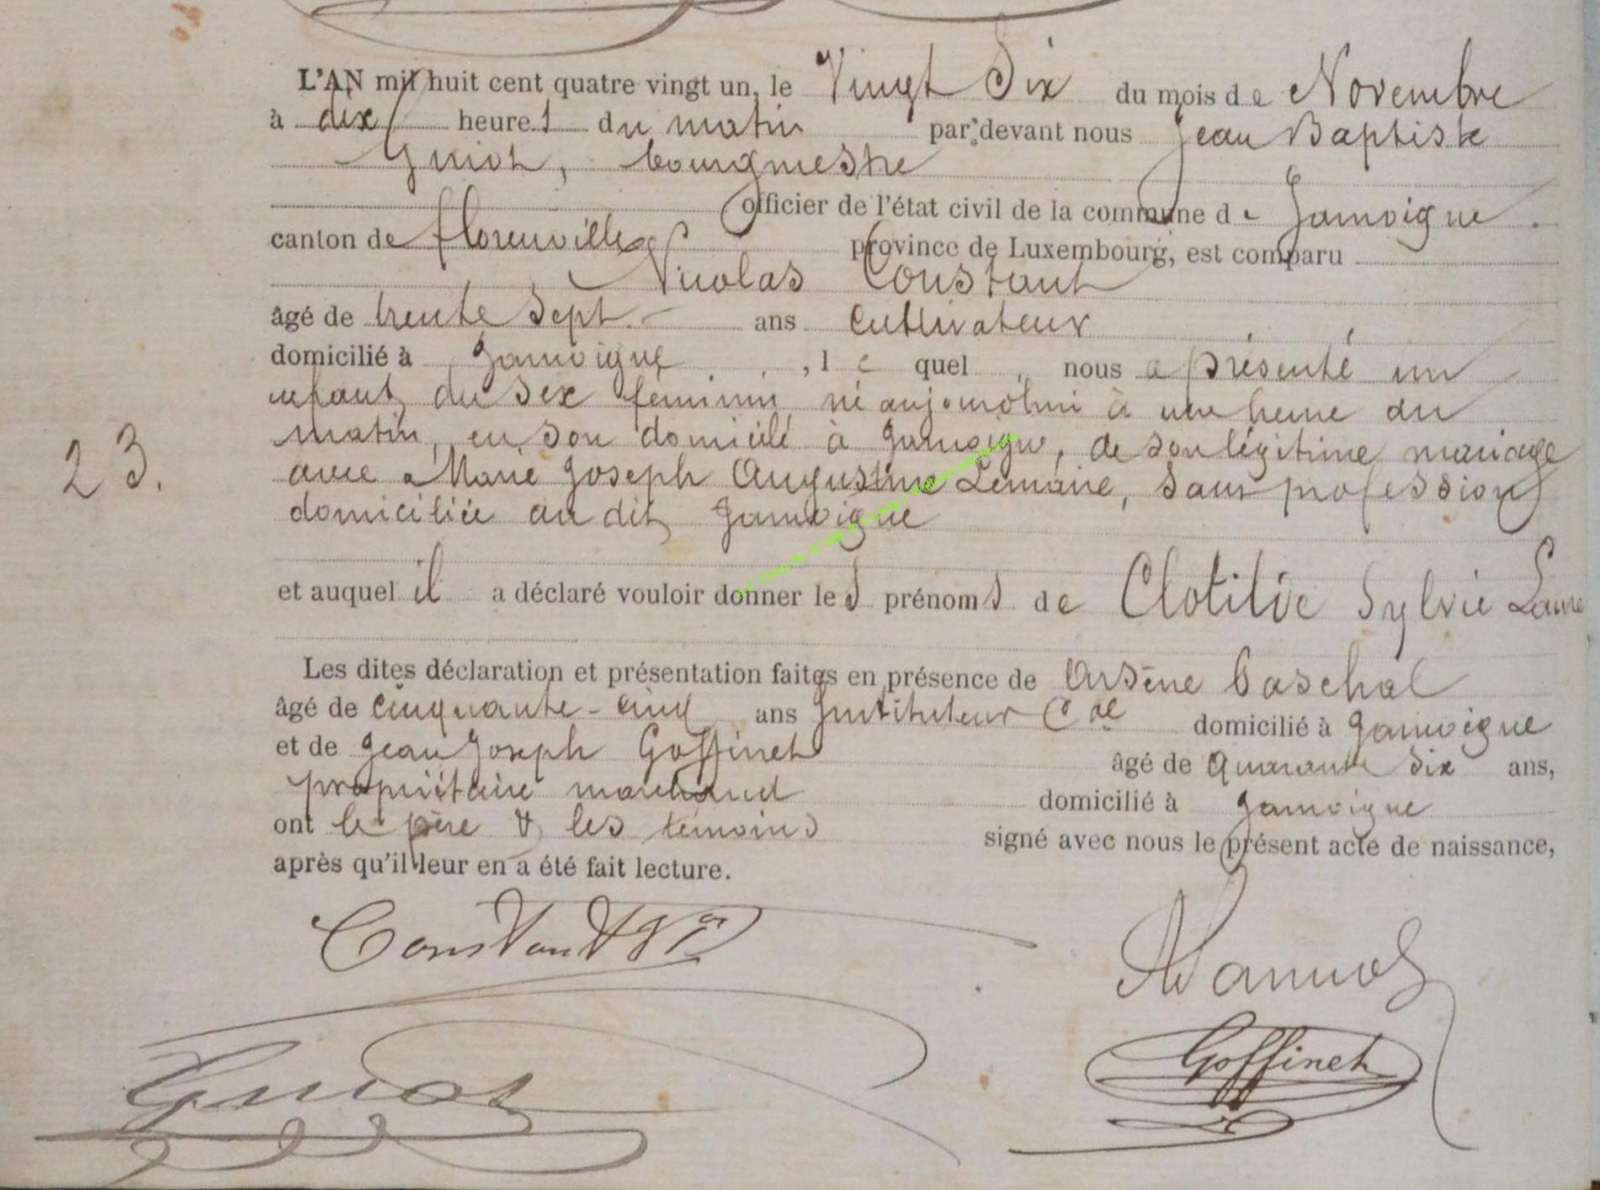 L'AN mil huit cent quatre vingt un, le Vingt Six du mois de Novembre
à dix heures du matin par-devant nous Jean Baptiste
Guiot, bourgmestre
officier de l'état civil de la commune de Jamoigne
canton de florenville province de Luxembourg, est comparu
Nicolas Constant
âgé de trente sept ans cultivateur
domicilié à Jamoigne, le quel nous a présenté un
enfant du sex féminin né aujourdhui à une heure du
matin, en son domicile à Jamoigne, de son légitime mariage
avec Marie Joseph Augustine Lemaire, sans profession
domiciliée au dit Jamoigne
23.
et auquel il a déclaré vouloir donner les prénoms de Clotilde Sylvie Laure
Les dites déclaration et présentation faites en présence de Arsène Paschal
âgé de cinquante-cinq ans Instituteur Cal domicilié à Jamoigne
et de Jean Joseph Goffinet âgé de Quarante six ans,
propriétaire marchand domicilié à Jamoigne
ont le père & les témoins signé avec nous le présent acte de naissance,
après qu'il leur en a été fait lecture.
Constant Nas
Goffinet
Guiot